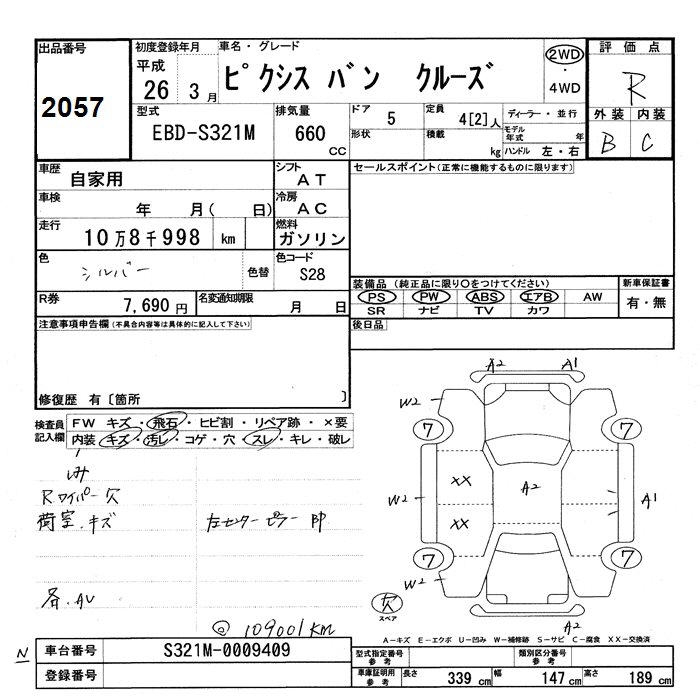 出品番号
2057
初度登録年月
平成
26 3月
車名・グレード
ピクシス バン クルーズ
2WD
・
4WD
評価点
R
外装 内装
B C
型式
EBD-S321M
排気量
660
CC
ドア 5
定員 4[2]人
ディーラー・並行
形状
積載 kg
モデル年式 年
ハンドル 左・右
車歴
自家用
シフト
AT
セールスポイント(正常に機能するものに限ります)
車検
年 月( 日)
冷房
AC
走行
10万8千998 km
燃料
ガソリン
色
シルバー
色替
色コード
S28
装備品 (純正品に限り○をつけてください)
PS PW ABS エアB AW
SR ナビ TV カワ
新車保証書
有・無
R券
7,690円
名変通知期限
月 日
後日品
注意事項申告欄(不具合内容等は具体的に記入して下さい)
修復歴 有〔箇所 〕
検査員
記入欄
FW キズ・飛石・ヒビ割・リペア跡・×要
内装・キズ・汚レ・コゲ・穴・スレ・キレ・破レ
しみ
Rワイパー欠
荷室.キズ
左センターピラー 印
各.AU
◎ 109001KM
A2 A1
W2
7 7
XX
A2
W2
A1
XX
7 7
W2
欠
スペア
A2
A-キズ E-エクボ U-凹み W-補修跡 S-サビ C-腐食 XX-交換済
N
車台番号
S321M-0009409
登録番号
型式指定番号
参考
類別区分番号
参考
車庫証明用
参考
長さ 339 cm
幅 147 cm
高さ 189 cm